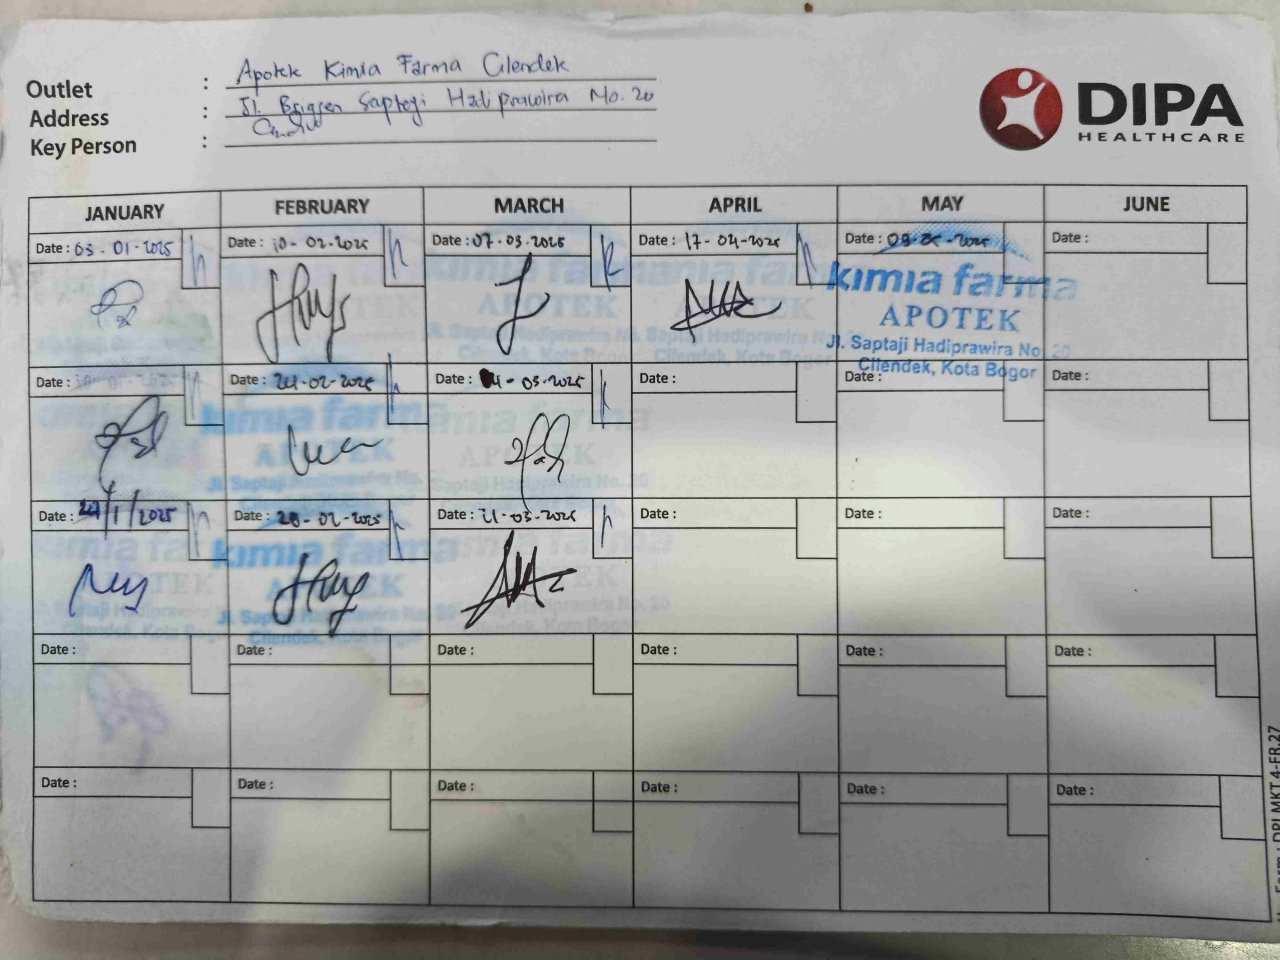 Outlet : Apotek Kimia Farma Cilendek
Address : Jl. Brigjen Saptaji Hadiprawira No. 20
Key Person :
DIPA
HEALTHCARE
JANUARY FEBRUARY MARCH APRIL MAY JUNE
Date : 03-01-2025 Date : 10-02-2025 Date : 07-03-2025 Date : 17-04-2025 Date : Date :
kimia farma
APOTEK
Jl. Saptaji Hadiprawira No. 20
Cilendek, Kota Bogor
Date : Date : 24-02-2025 Date : -03-2025 Date : Date : Date :
kimia farma
APOTEK
Date : /1/2025 Date : 28-02-2025 Date : 21-03-2025 Date : Date : Date :
kimia farma
APOTEK
Jl. Saptaji Hadiprawira No. 20
Cilendek, Kota Bogor
Date : Date : Date : Date : Date : Date :
Date : Date : Date : Date : Date : Date :
Form : DPI.MKT.4-FR.27